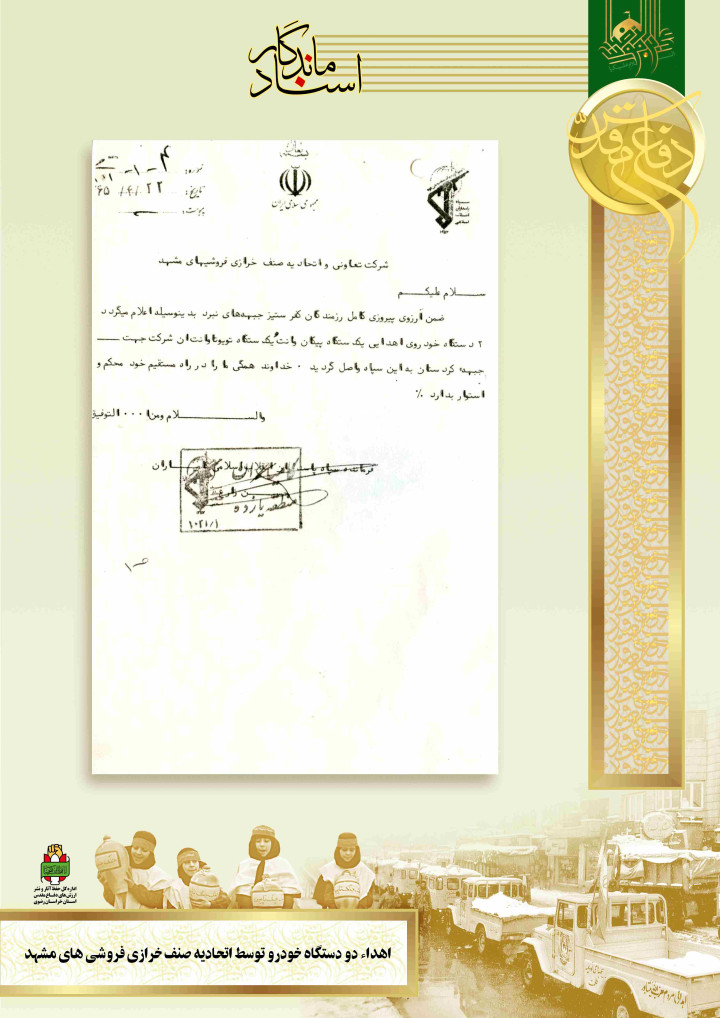 اسناد ماندگار
دفاع مقدس
بسمه تعالی
جمهوری اسلامی ایران
سپاه
پاسداران
انقلاب
اسلامی
شماره: ۴-۱-
تاریخ: ۲۲/۴/۶۵
پیوست:
شرکت تعاونی و اتحادیه صنف خرازی فروشیهای مشهد
ســـلام علیکـــم
ضمن آرزوی پیروزی کامل رزمندگان کفر ستیز جبههه‌های نبرد بدینوسیله اعلام میگردد
۲ دستگاه خودروی اهدایی یکدستگاه پیکان وانت و یکدستگاه تویوتا وانت ان شرکت جهت
جبهه کردستان به این سپاه واصل گردید ۰ خداوند همگی ما را در راه مستقیم خود محکم و
استوار بدارد ٪
والســـلام ومن ا۰۰۰ التوفیق
فرمانده سپاه پاسداران انقلاب اسلامی
منطقه یازده
۱۰۲۱/۱
اداره کل حفظ آثار و نشر
ارزش های دفاع مقدس
استان خراسان رضوی
اهداء دو دستگاه خودرو توسط اتحادیه صنف خرازی فروشی های مشهد
اهدائی مردم